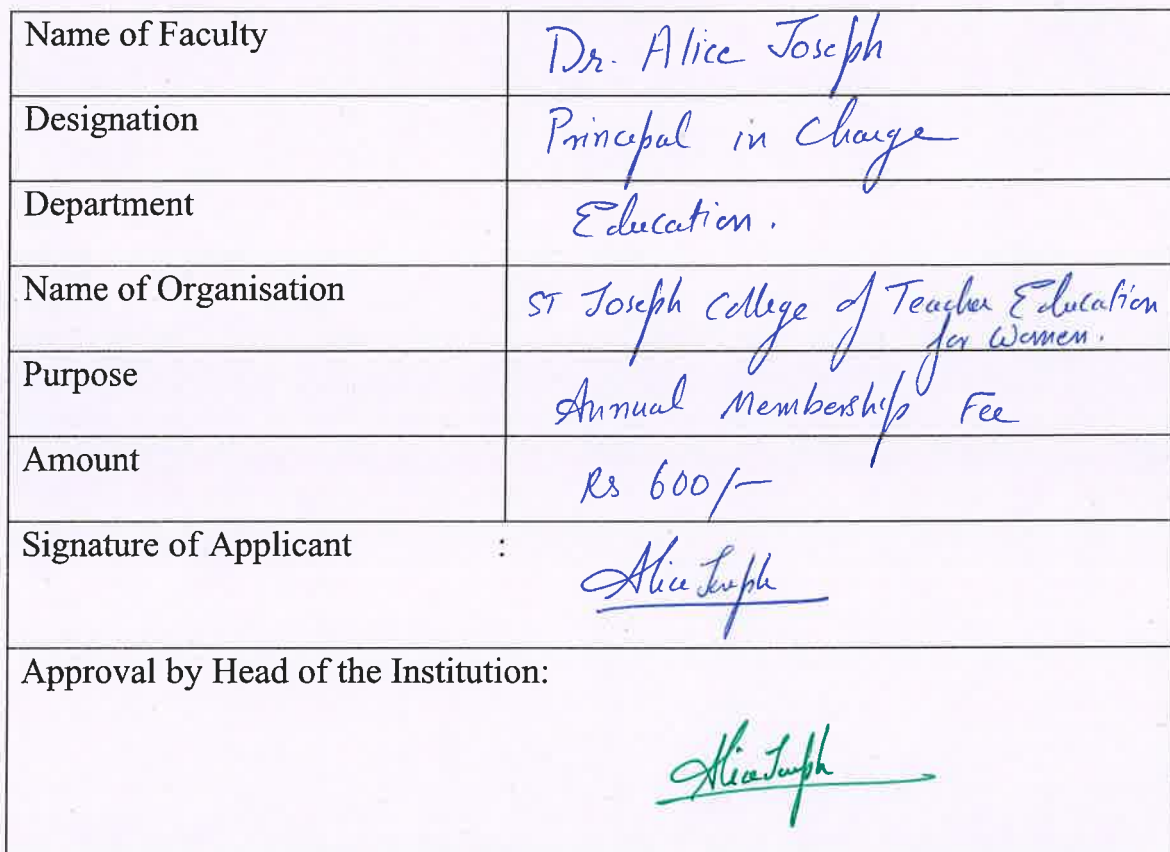 Name of Faculty Dr. Alice Joseph
Designation Principal in Charge
Department Education.
Name of Organisation ST Joseph College of Teacher Education
for Women.
Purpose Annual Membership Fee
Amount Rs 600/-
Signature of Applicant : Alice Joseph
Approval by Head of the Institution:
Alice Joseph